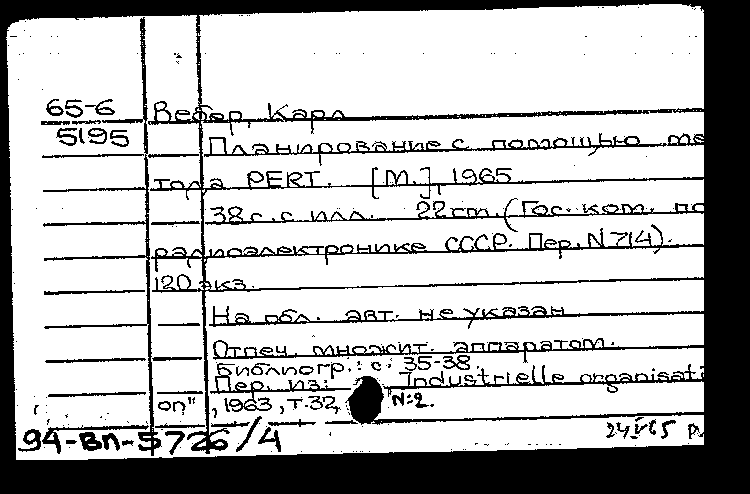 65-6 Вебер, Карл
5195 Планирование с помощью ме
тода PERT. [М.], 1965
38 с. с илл. 22 cm. (Гос. ком. по
радиоэлектронике СССР. Пер. N 714).
120 экз.
На обл. авт. не указан
Отпеч. множит. аппаратом.
Библиогр.: с. 35-38.
Пер. из: Industrielle organisati
on", 1963, т. 32, N:2.
94-ВП-5726/4